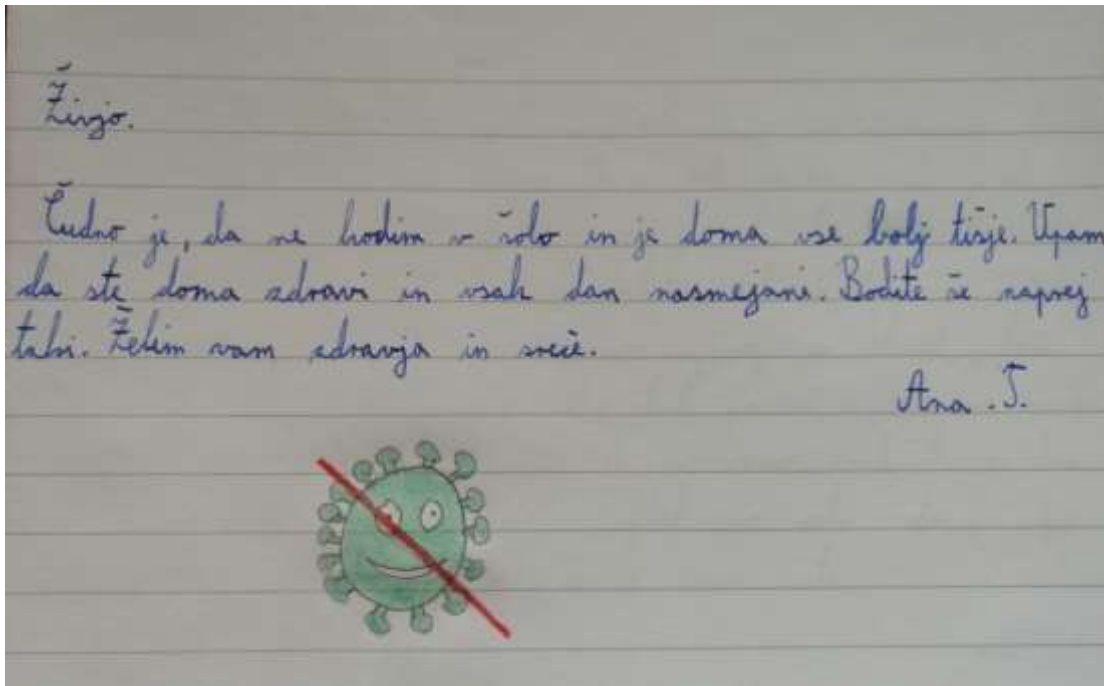 Živjo.
Čudno je, da ne hodim v šolo in je doma vse bolj tišje. Upam
da ste doma zdravi in vsak dan nasmejani. Bodite še naprej
taki. Želim vam zdravja in sreče.
Ana .T.